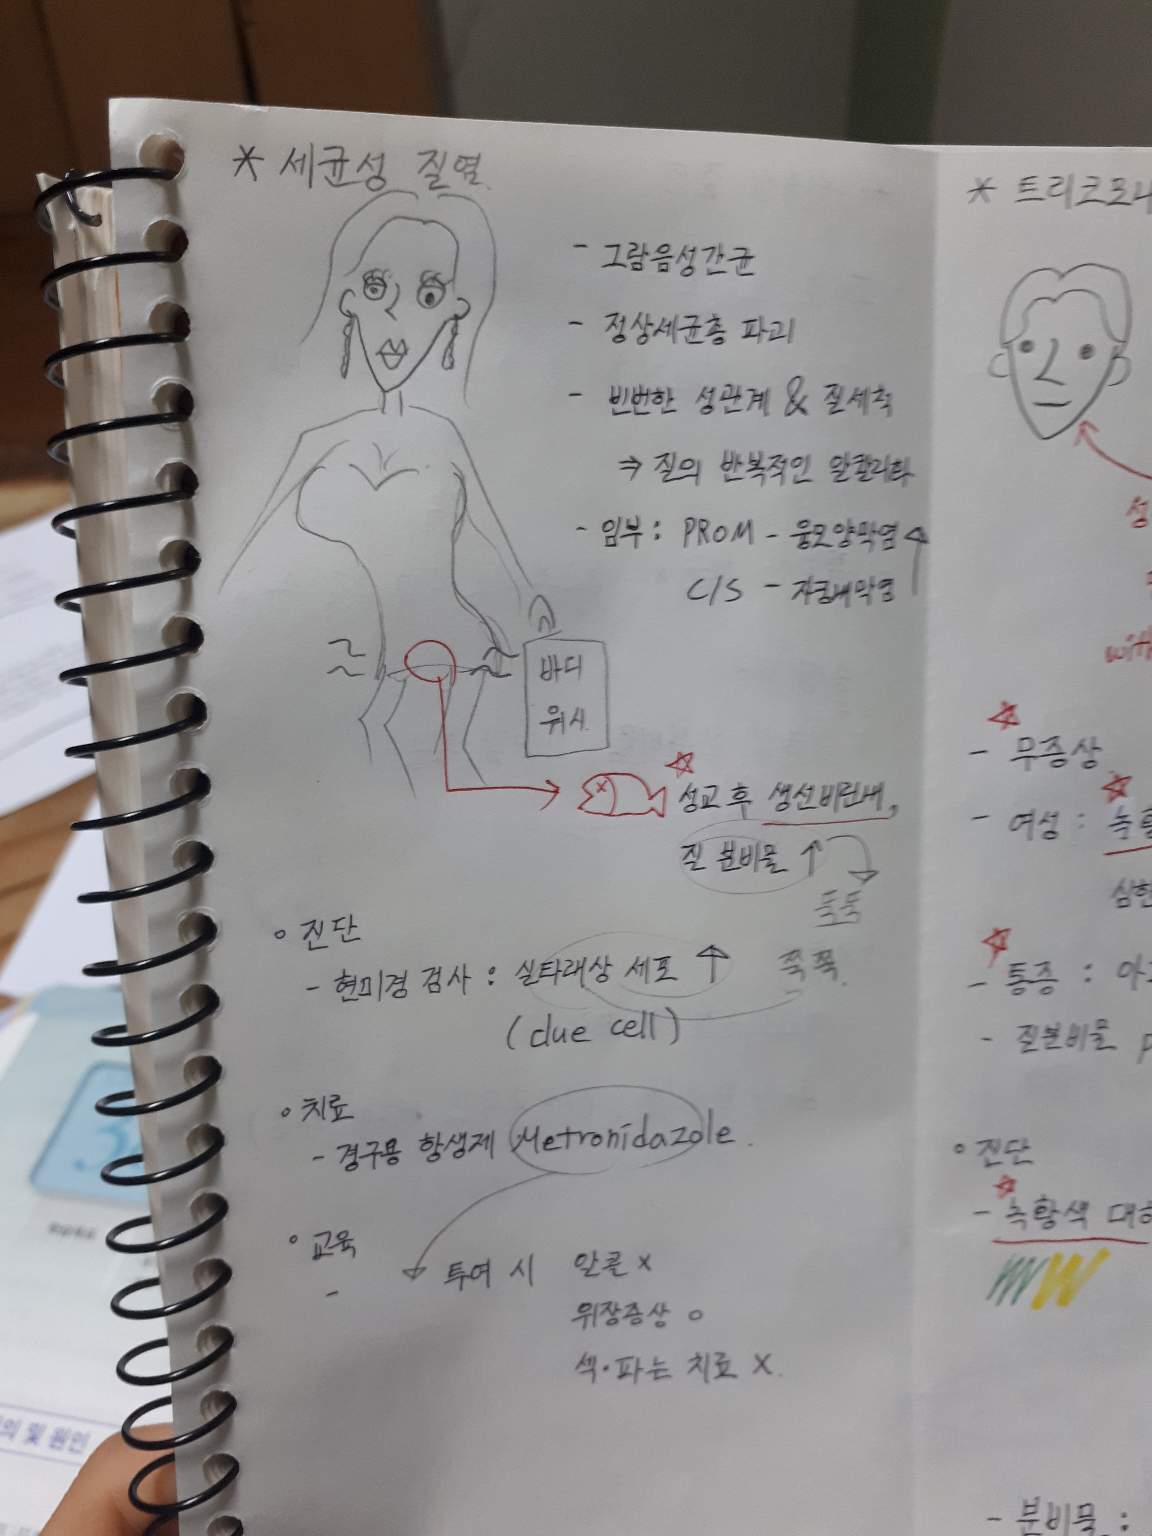 * 세균성 질염.
- 그람음성간균
- 정상세균총 파괴
- 빈번한 성관계 & 질세척
⇒ 질의 반복적인 알칼리화
- 임부 : PROM - 융모양막염 ↑
C/S - 자궁내막염
바디
워시
☆ 성교 후 생선비린내,
질 분비물 ↑
톡톡
쭉쭉.
◦ 진단
- 현미경 검사 : 실타래상 세포 ↑
(clue cell)
◦ 치료
- 경구용 항생제 Metronidazole.
◦ 교육
-
투여 시 알콜 x
위장증상 o
섹·파는 치료 X.
* 트리코모나
성
with
- 무증상
- 여성 :
심한
- 통증 :
- 질분비물 p
◦ 진단
- 녹황색 대하
- 분비물 :
의 및 원인